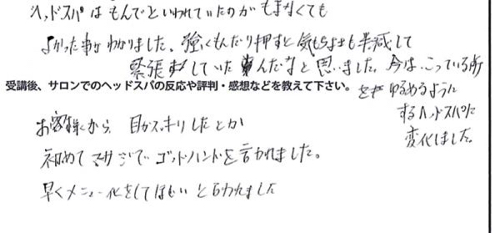 ヘッドスパはもんでといわれていたのがもまなくても
よかった事がわかりました、強くもんだり押すと気もちよさも半減して
緊張していたんだなと思いました。今は、こっている所
をゆるめるように
するヘッドスパに
変化しました。
受講後、サロンでのヘッドスパの反応や評判・感想などを教えて下さい。
お客様から 目がスッキリしたとか
初めてマッサージでゴッドハンドと言われました。
早くメニュー化をしてほしいと言われました